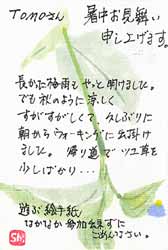 TOMOさん
暑中お見舞い
申し上げます。
長かった梅雨もやっと明けました。
でも秋のように涼しく
すがすがしくて、久しぶりに
朝からウォーキングに出掛け
ました。帰り道でツユ草を
少しばかり・・・
遊ぶ絵手紙
なかなか参加出来ずに
ごめんなさい。